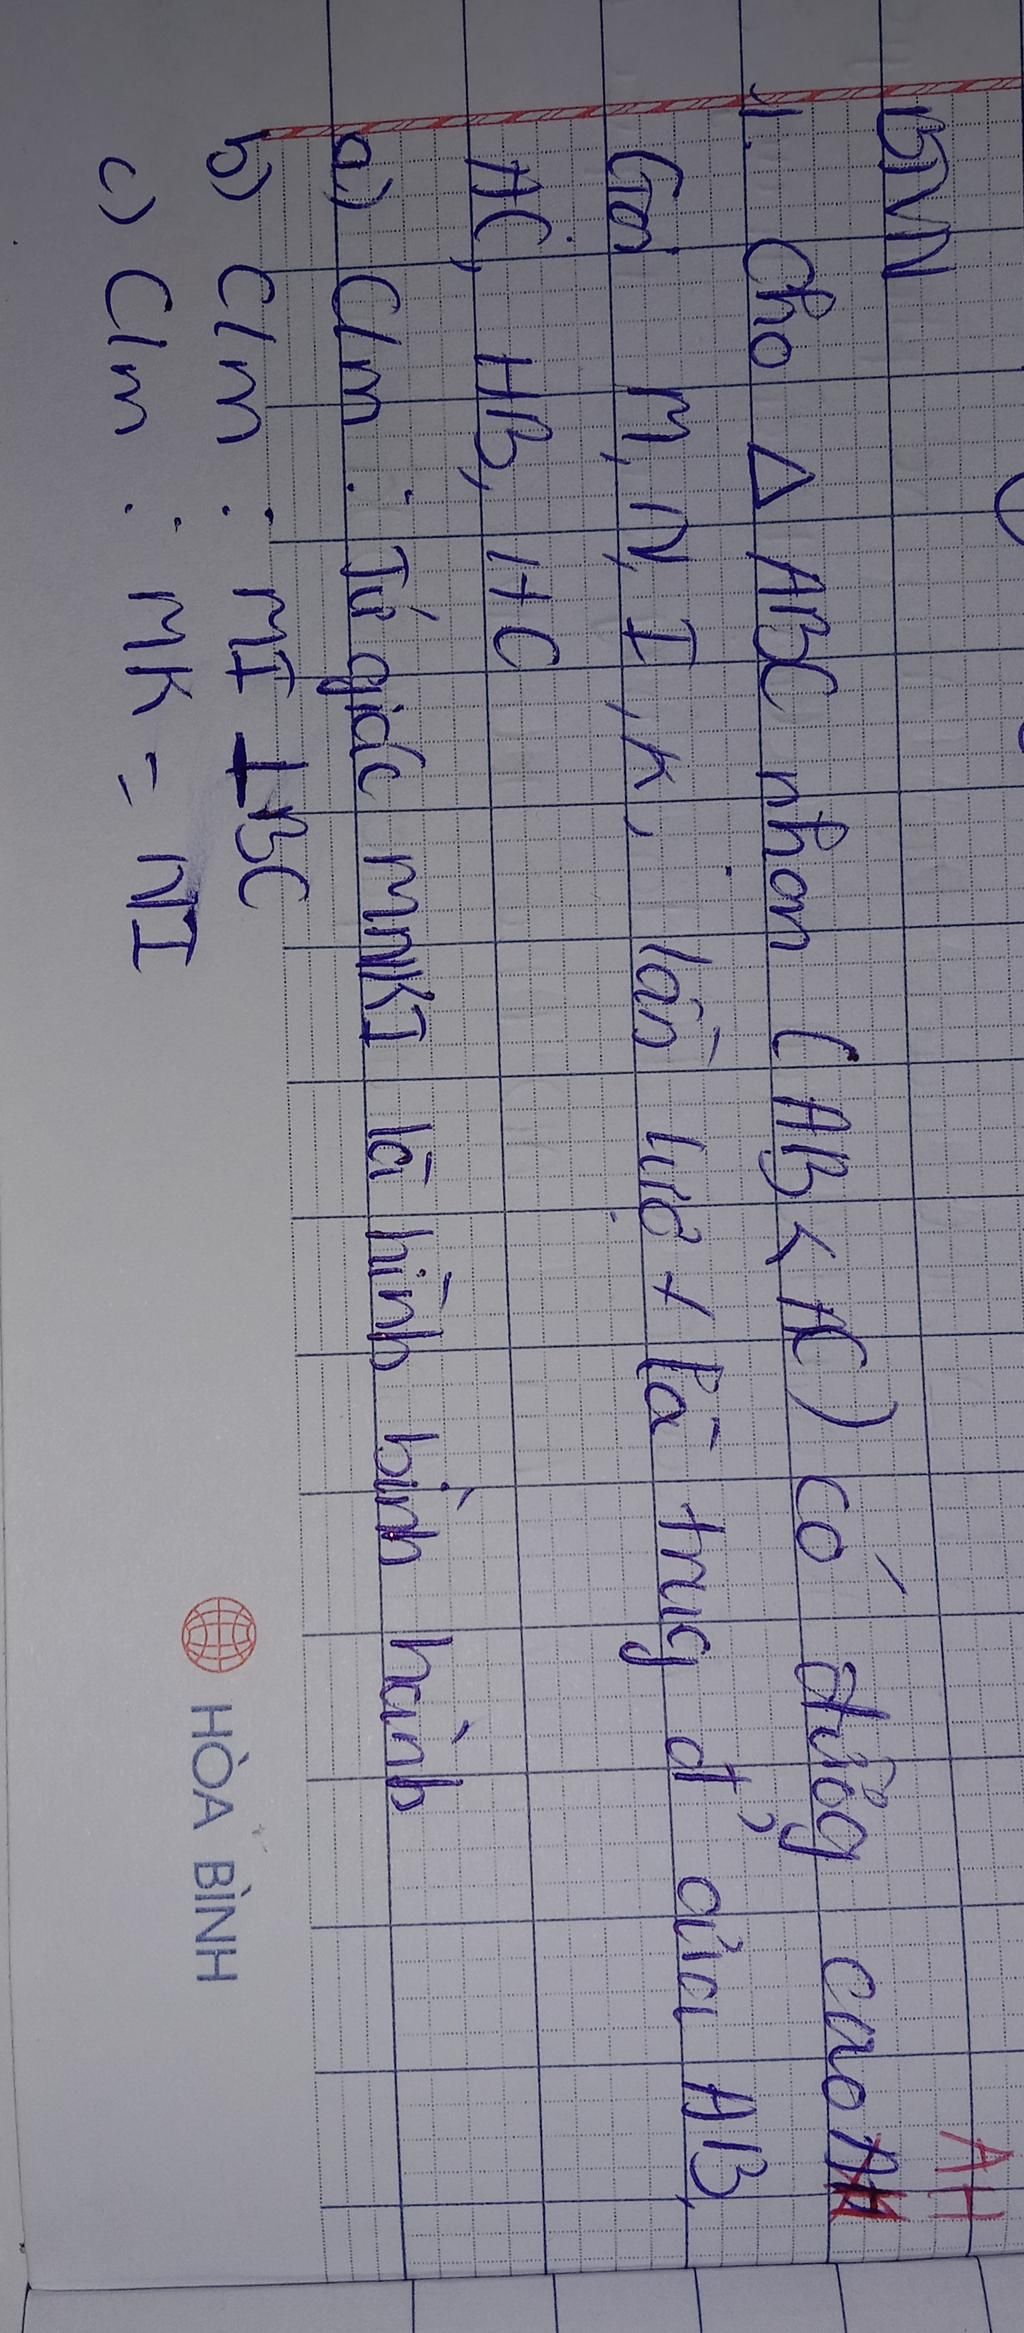 BTVN
AH
1. Cho △ ABC nhọn (AB < AC) có đường cao
Gọi M, N, I, K, lần lượt là trug đ' của AB,
AC, HB, HC
a) C/m : Tứ giác MNKI là hình bình hành
b) C/m : MI ⊥ BC
c) C/m : MK = NI
HÒA BÌNH